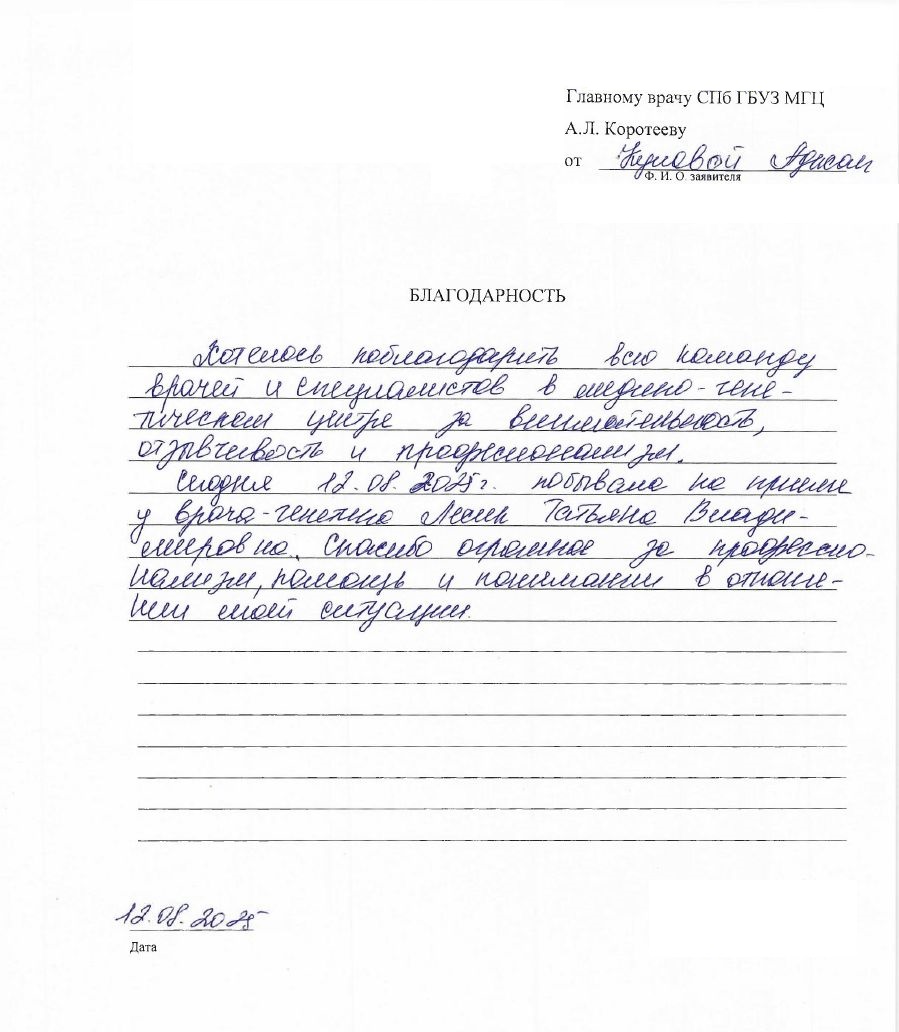 Главному врачу СПб ГБУЗ МГЦ
А.Л. Коротееву
от
Ф. И. О. заявителя
БЛАГОДАРНОСТЬ
Хотелось поблагодарить всю команду
врачей и специалистов в медико-гене-
тическом центре за внимательность,
отзывчивость и профессионализм.
Сегодня 12.08.2025г. побывала на приеме
у врача-генетика Татьяна Влади-
мировна. Спасибо огромное за профессио-
нализм, помощь и понимании в отноше-
нии моей ситуации.
12.08.2025
Дата